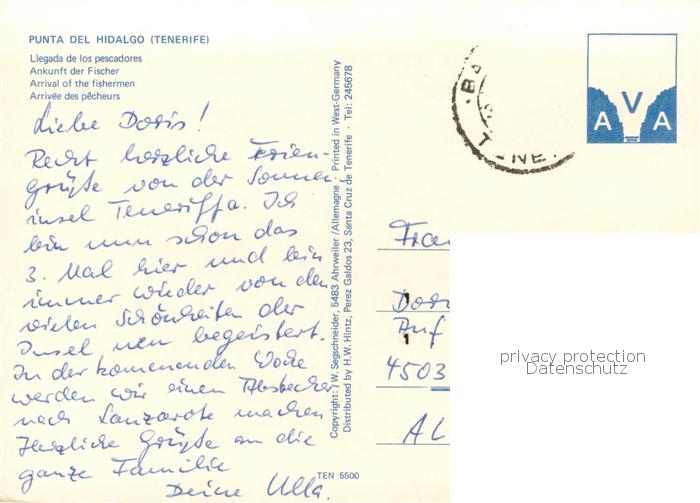 PUNTA DEL HIDALGO (TENERIFE)
Llegada de los pescadores
Ankunft der Fischer
Arrival of the fishermen
Arrivée des pêcheurs
Liebe Doris!
Recht herzliche Ferien-
grüße von der Sonnen-
insel Teneriffa. Ich
bin nun schon das
3. Mal hier und bin
immer wieder von den
vielen Schönheiten der
Insel neu begeistert.
In der kommenden Woche
werden wir einen Abstecher
nach Lanzarote machen
Herzliche Grüße an die
ganze Familie
Deine Ulla.
Copyright: W. Segschneider, 5483 Ahrweiler/Allemagne · Printed in West-Germany
Distributed by H.W. Hintz, Perez Galdos 23, Santa Cruz de Tenerife · Tel: 245678
TEN 5500
AVA
Auf
4503
AL
privacy protection
Datenschutz